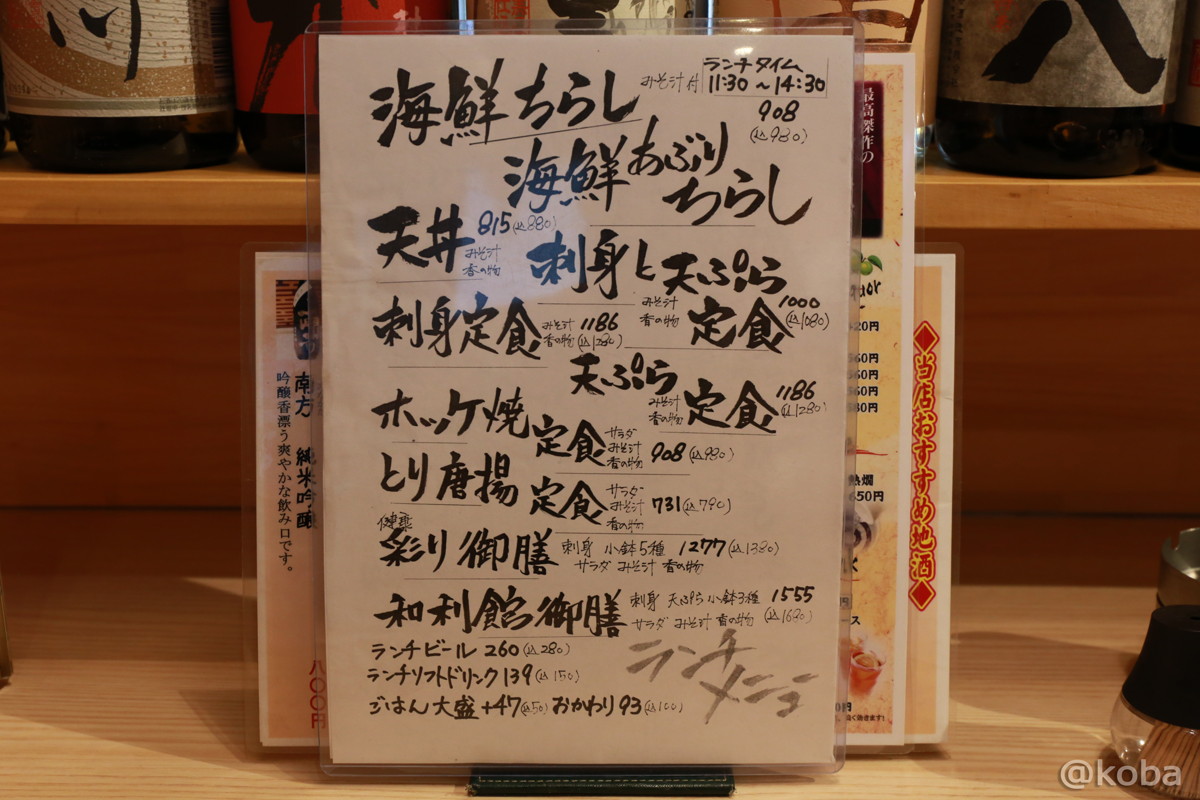 ランチタイム
11:30～14:30
海鮮ちらし
みそ汁付
908
(込980)
海鮮あぶり
ちらし
天丼
815(込880)
みそ汁
香の物
刺身と天ぷら
定食
みそ汁
香の物
1000
(込1080)
刺身定食
みそ汁
香の物
1186
(込1280)
天ぷら
定食
みそ汁
香の物
1186
(込1280)
ホッケ焼
定食
サラダ
みそ汁
香の物
908(込980)
とり唐揚
定食
サラダ
みそ汁
香の物
731(込790)
健菜
彩り御膳
刺身 小鉢5種 1277(込1380)
サラダ みそ汁 香の物
和利館御膳
刺身 天ぷら 小鉢3種 1555
サラダ みそ汁 香の物 (込1680)
ランチビール 260(込280)
ランチソフトドリンク 139(込150)
ごはん大盛+47(込50) おかわり93(込100)
ランチ
メニュー
南方 純米吟醸
吟醸香漂う爽やかな飲み口です。
八〇〇円
最高傑作の
560円
650円
熱燗
◆当店おすすめ地酒◆
川
八
@koba